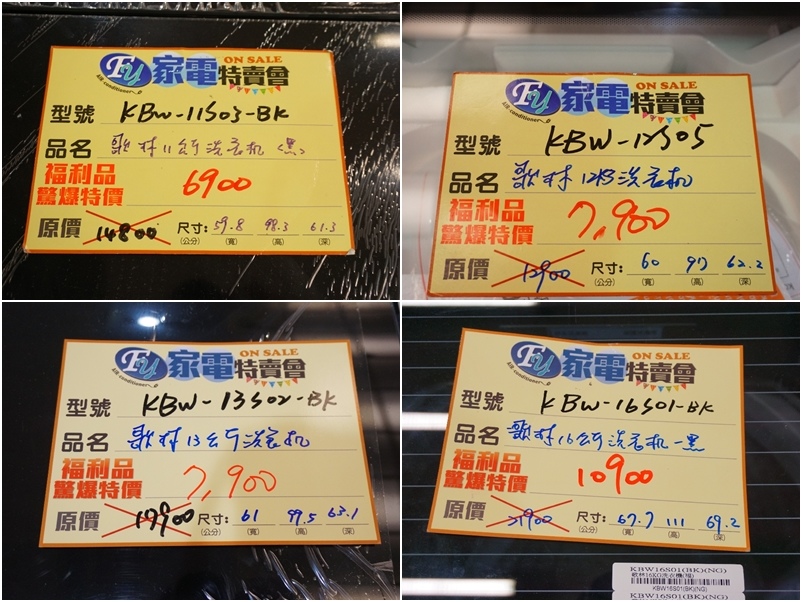 Fu 家電特賣會 ON SALE
air conditioner
型號 KBW-11S03-BK
品名 歌林11公斤洗衣机(黑)
福利品
驚爆特價 6900
原價 14800 尺寸: 59.8 98.3 61.3
(公分) (寬) (高) (深)
Fu 家電特賣會 ON SALE
air conditioner
型號 KBW-12S05
品名 歌林12KG洗衣机
福利品
驚爆特價 7,900
原價 12900 尺寸: 60 97 62.2
(公分) (寬) (高) (深)
Fu 家電特賣會 ON SALE
air conditioner
型號 KBW-13S02-BK
品名 歌林13公斤洗衣机
福利品
驚爆特價 7,900
原價 17900 尺寸: 61 99.5 63.1
(公分) (寬) (高) (深)
Fu 家電特賣會 ON SALE
air conditioner
型號 KBW-16S01-BK
品名 歌林16公斤洗衣机-黑
福利品
驚爆特價 10900
原價 21900 尺寸: 67.7 111 69.2
(公分) (寬) (高) (深)
KBW16S01(BK)(NG)
歌林16KG洗衣機(福)
KBW16S01(BK)(NG)
KBW16S01(BK)(NG)